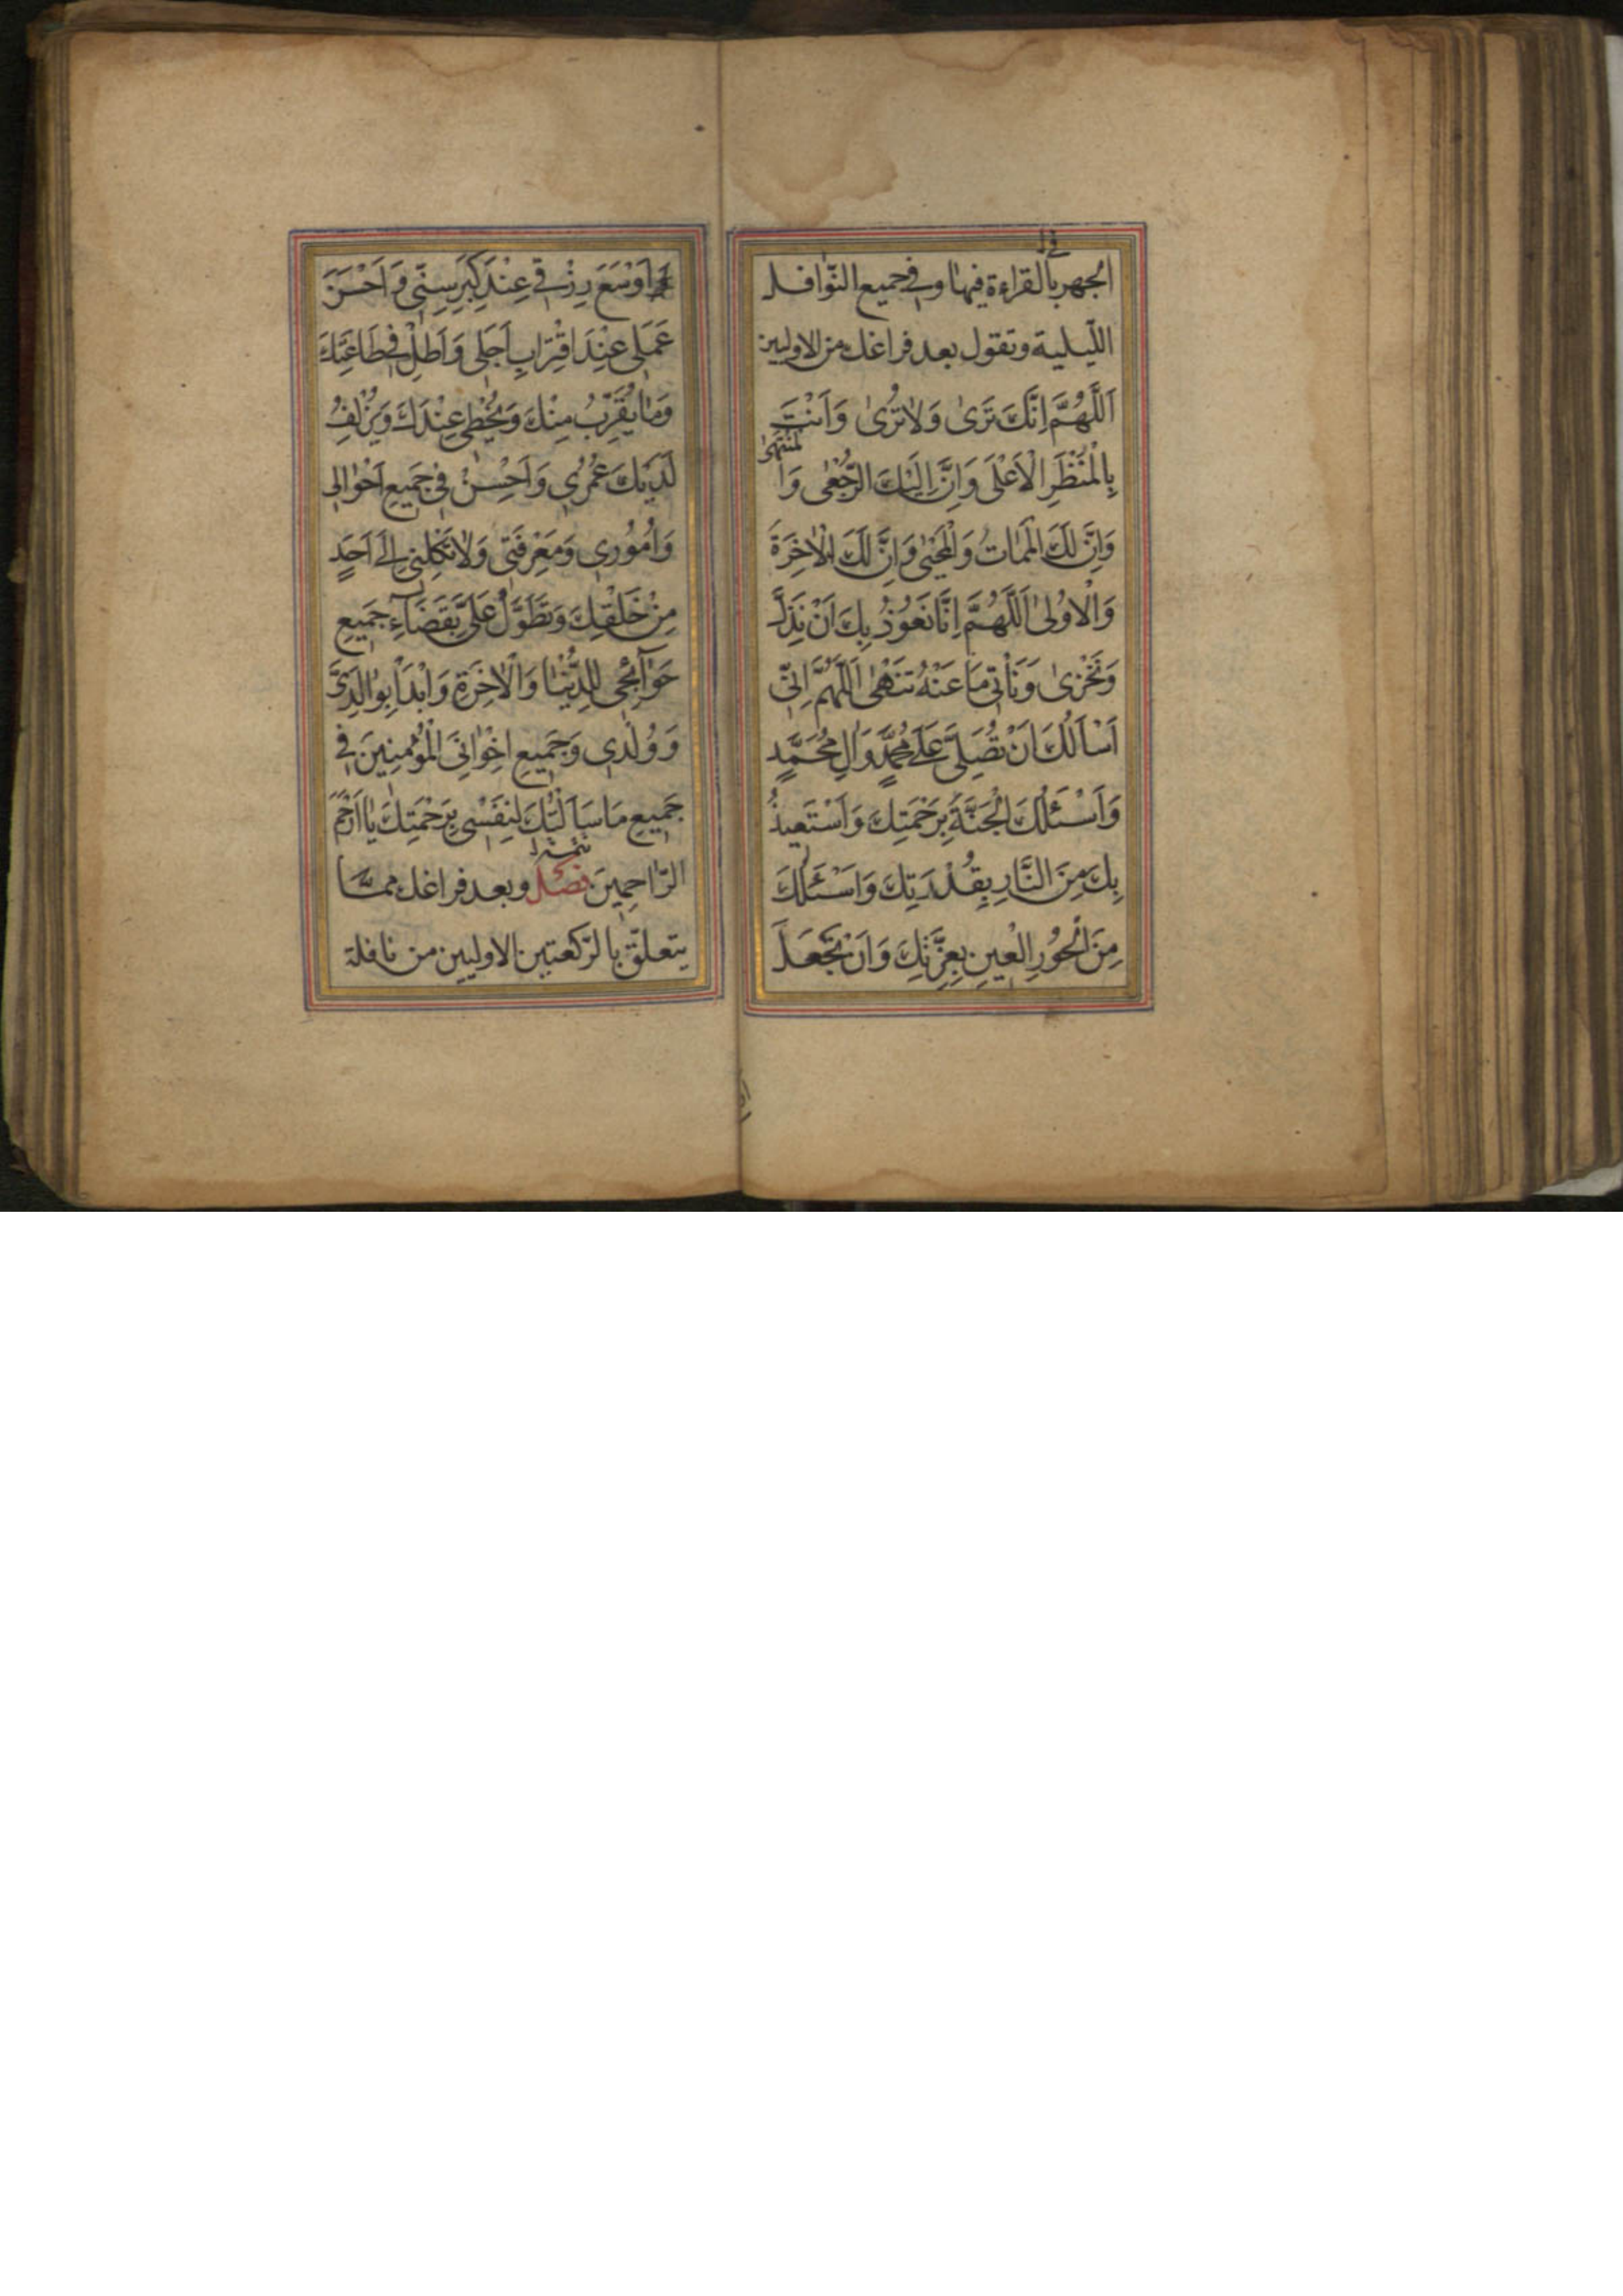 الجهر بالقراءة فيها وفي جميع النّوافل
اللّيلية وتقول بعد فراغك من الاوليين
اَللّٰهُمَّ اِنَّكَ تَرىٰ وَلاٰ تُرىٰ وَاَنْتَ
بِالْمَنْظَرِ الْاَعْلىٰ وَاِنَّ اِلَيْكَ الرُّجْعىٰ وَالْمُنْتَهىٰ
وَاِنَّ لَكَ الْمَمٰاتُ وَالْمَحْيىٰ وَاِنَّ لَكَ الْاٰخِرَةَ
وَالْاُولىٰ اَللّٰهُمَّ اِنّٰا نَعُوذُ بِكَ اَنْ نَذِلَّ
وَنَخْزىٰ وَنَأْتِيَ مَا عَنْهُ تَنْهىٰ اَللّٰهُمَّ اِنّي
اَسْاَلُكَ اَنْ تُصَلِّيَ عَلىٰ مُحَمَّدٍ وَالِ مُحَمَّدٍ
وَاَسْئَلُكَ الْجَنَّةَ بِرَحْمَتِكَ وَاَسْتَعِيذُ
بِكَ مِنَ النَّارِ بِقُدْرَتِكَ وَاَسْئَلُكَ
مِنَ الْحُورِ الْعِينِ بِعِزَّتِكَ وَاَنْ تَجْعَلَ
اَوْسَعَ رِزْقي عِنْدَ كِبَرِ سِنّي وَاَحْسَنَ
عَمَلي عِنْدَ اقْتِرٰابِ اَجَلي وَاَطِلْ في طَاعَتِكَ
وَمٰا يُقَرِّبُ مِنْكَ وَيُحْظي عِنْدَكَ وَيُزْلِفُ
لَدَيْكَ عُمْري وَاَحْسِنْ في جَميعِ اَحْوٰالي
وَاُمُوري وَمَعْرِفَتي وَلاٰ تَكِلْني اِلىٰ اَحَدٍ
مِنْ خَلْقِكَ وَتَطَوَّلْ عَلَيَّ بِقَضَاۤءِ جَميعِ
حَوٰاۤئِجي لِلدُّنْيٰا وَالْاٰخِرَةِ وَابْدَأْ بِوٰالِدَيَّ
وَوُلْدي وَجَميعِ اِخْوٰانِيَ الْمُؤْمِنينَ في
جَميعِ مَا سَاَلْتُكَ لِنَفْسي بِرَحْمَتِكَ يٰا اَرْحَمَ
الرّٰاحِمِينَ فصل وبعد فراغك ممّا
يتعلّق بالرّكعتين الاوليين من نافلة